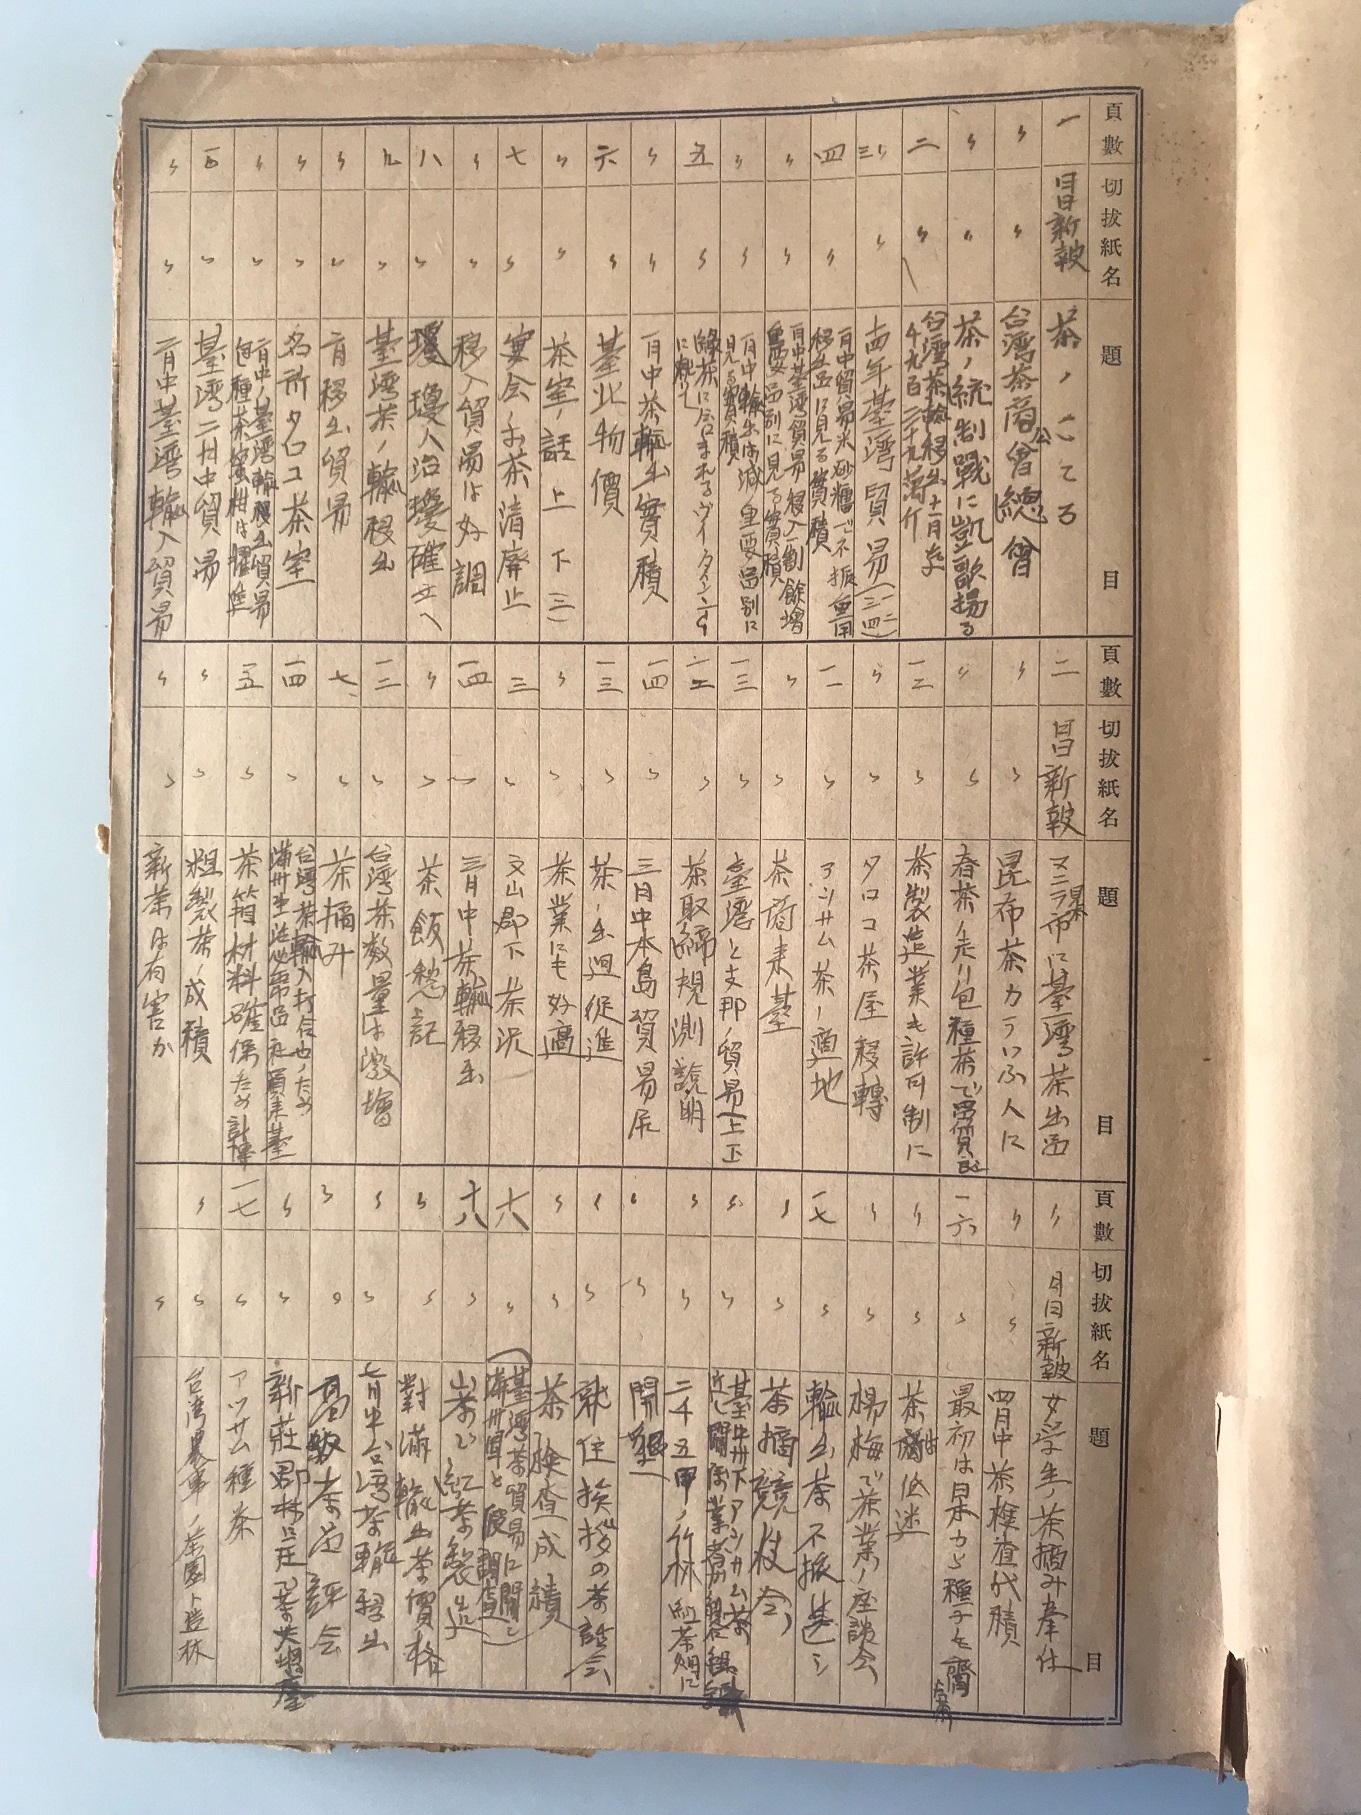 頁數 切拔紙名 題目
一 日日新報 茶ノこてる
〃 〃 台湾茶商公會總會
〃 〃 茶ノ統制戰に凱歌揚る
二 〃 台湾茶輸移出十一月迄千九百二十九萬斤
三 〃 十四年臺灣貿易(一二三四)
四 〃 一月中貿易米砂糖で不振重要移出品に見る實積
〃 〃 一月中臺灣貿易移入一割餘增重要品別に見る實積
〃 〃 一月中輸出は減重要品別に見る實積
五 〃 綠茶に含まれるヴイタミンCに就て
〃 〃 一月中茶輸出實積
六 〃 臺北物價
〃 〃 茶室ノ話 上 下 三
七 〃 宴会ノお茶清廃止
〃 〃 移入貿易は好調
八 〃 瓊人治瓊確立へ
九 〃 臺灣茶ノ輸移出
〃 〃 二月移出貿易
〃 〃 名所タロコ茶室
〃 〃 二月中ノ臺灣輸移出貿易包種茶蜜柑は躍進
〃 臺灣二月中貿易
〃 〃 二月中臺灣輸入貿易
頁數 切拔紙名 題目
二 日日新報 マニラ麻布に臺灣茶出品
〃 〃 昆布茶カラいふ人に
〃 〃 春茶ノ走り包種茶で品質良
一二 〃 茶製造業も許可制に
〃 〃 タロコ茶屋移轉
一一 〃 アッサム茶ノ適地
〃 〃 茶商来臺
一三 〃 臺灣と支那ノ貿易 上 下
〃 茶取締規則說明
一四 〃 三月中本島貿易尻
一三 〃 茶ノ出迴促進
〃 〃 茶業にも好適
三 〃 文山郡下茶況
一四 〃 三月中茶輸移出
〃 〃 茶飯愁記
一三 〃 台湾茶数量は激增
七 〃 茶摘み
一四 〃 台湾茶輸入打合せノため満州生活必需品社員来臺
一五 〃 茶箱材料確保ため計畫
〃 〃 粗製茶ノ成積
〃 〃 新茶は有害か
頁數 切拔紙名 題目
〃 日日新報 女学生ノ茶摘み奉仕
〃 〃 四月中茶檢査成積
一六 〃 最初は日本から種子を齎
〃 〃 茶價は低迷
〃 〃 楊梅で茶業ノ座談会
一七 〃 輸出茶不振
〃 〃 茶摘競技会
〃 〃 臺中州下アッサム茶
〃 〃 二千五甲ノ竹林紅茶畑に
〃 〃 開墾
〃 〃 新任挨拶の茶話会
〃 〃 茶檢査成積
十六 〃 (臺灣茶貿易に關し満州国と)
十八 〃 山茶で紅茶製造
〃 〃 對満輸出茶價格
〃 〃 七月中台湾茶輸移出
〃 〃 高級茶品評会
〃 〃 新莊郡林口庄
一七 〃 アツサム種茶
〃 〃 台湾ノ茶園ト造林
〃